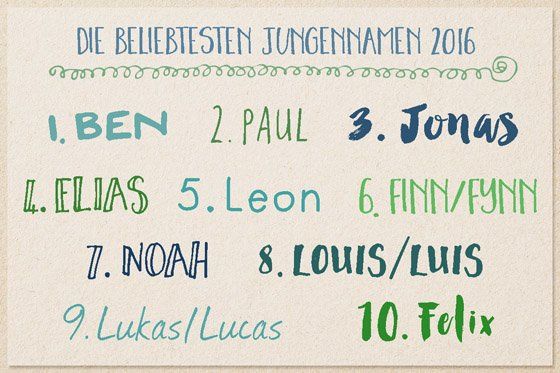 DIE BELIEBTESTEN JUNGENNAMEN 2016
1. BEN 2. PAUL 3. Jonas
4. ELIAS 5. Leon 6. FINN/FYNN
7. NOAH 8. LOUIS/LUIS
9. Lukas/Lucas 10. Felix